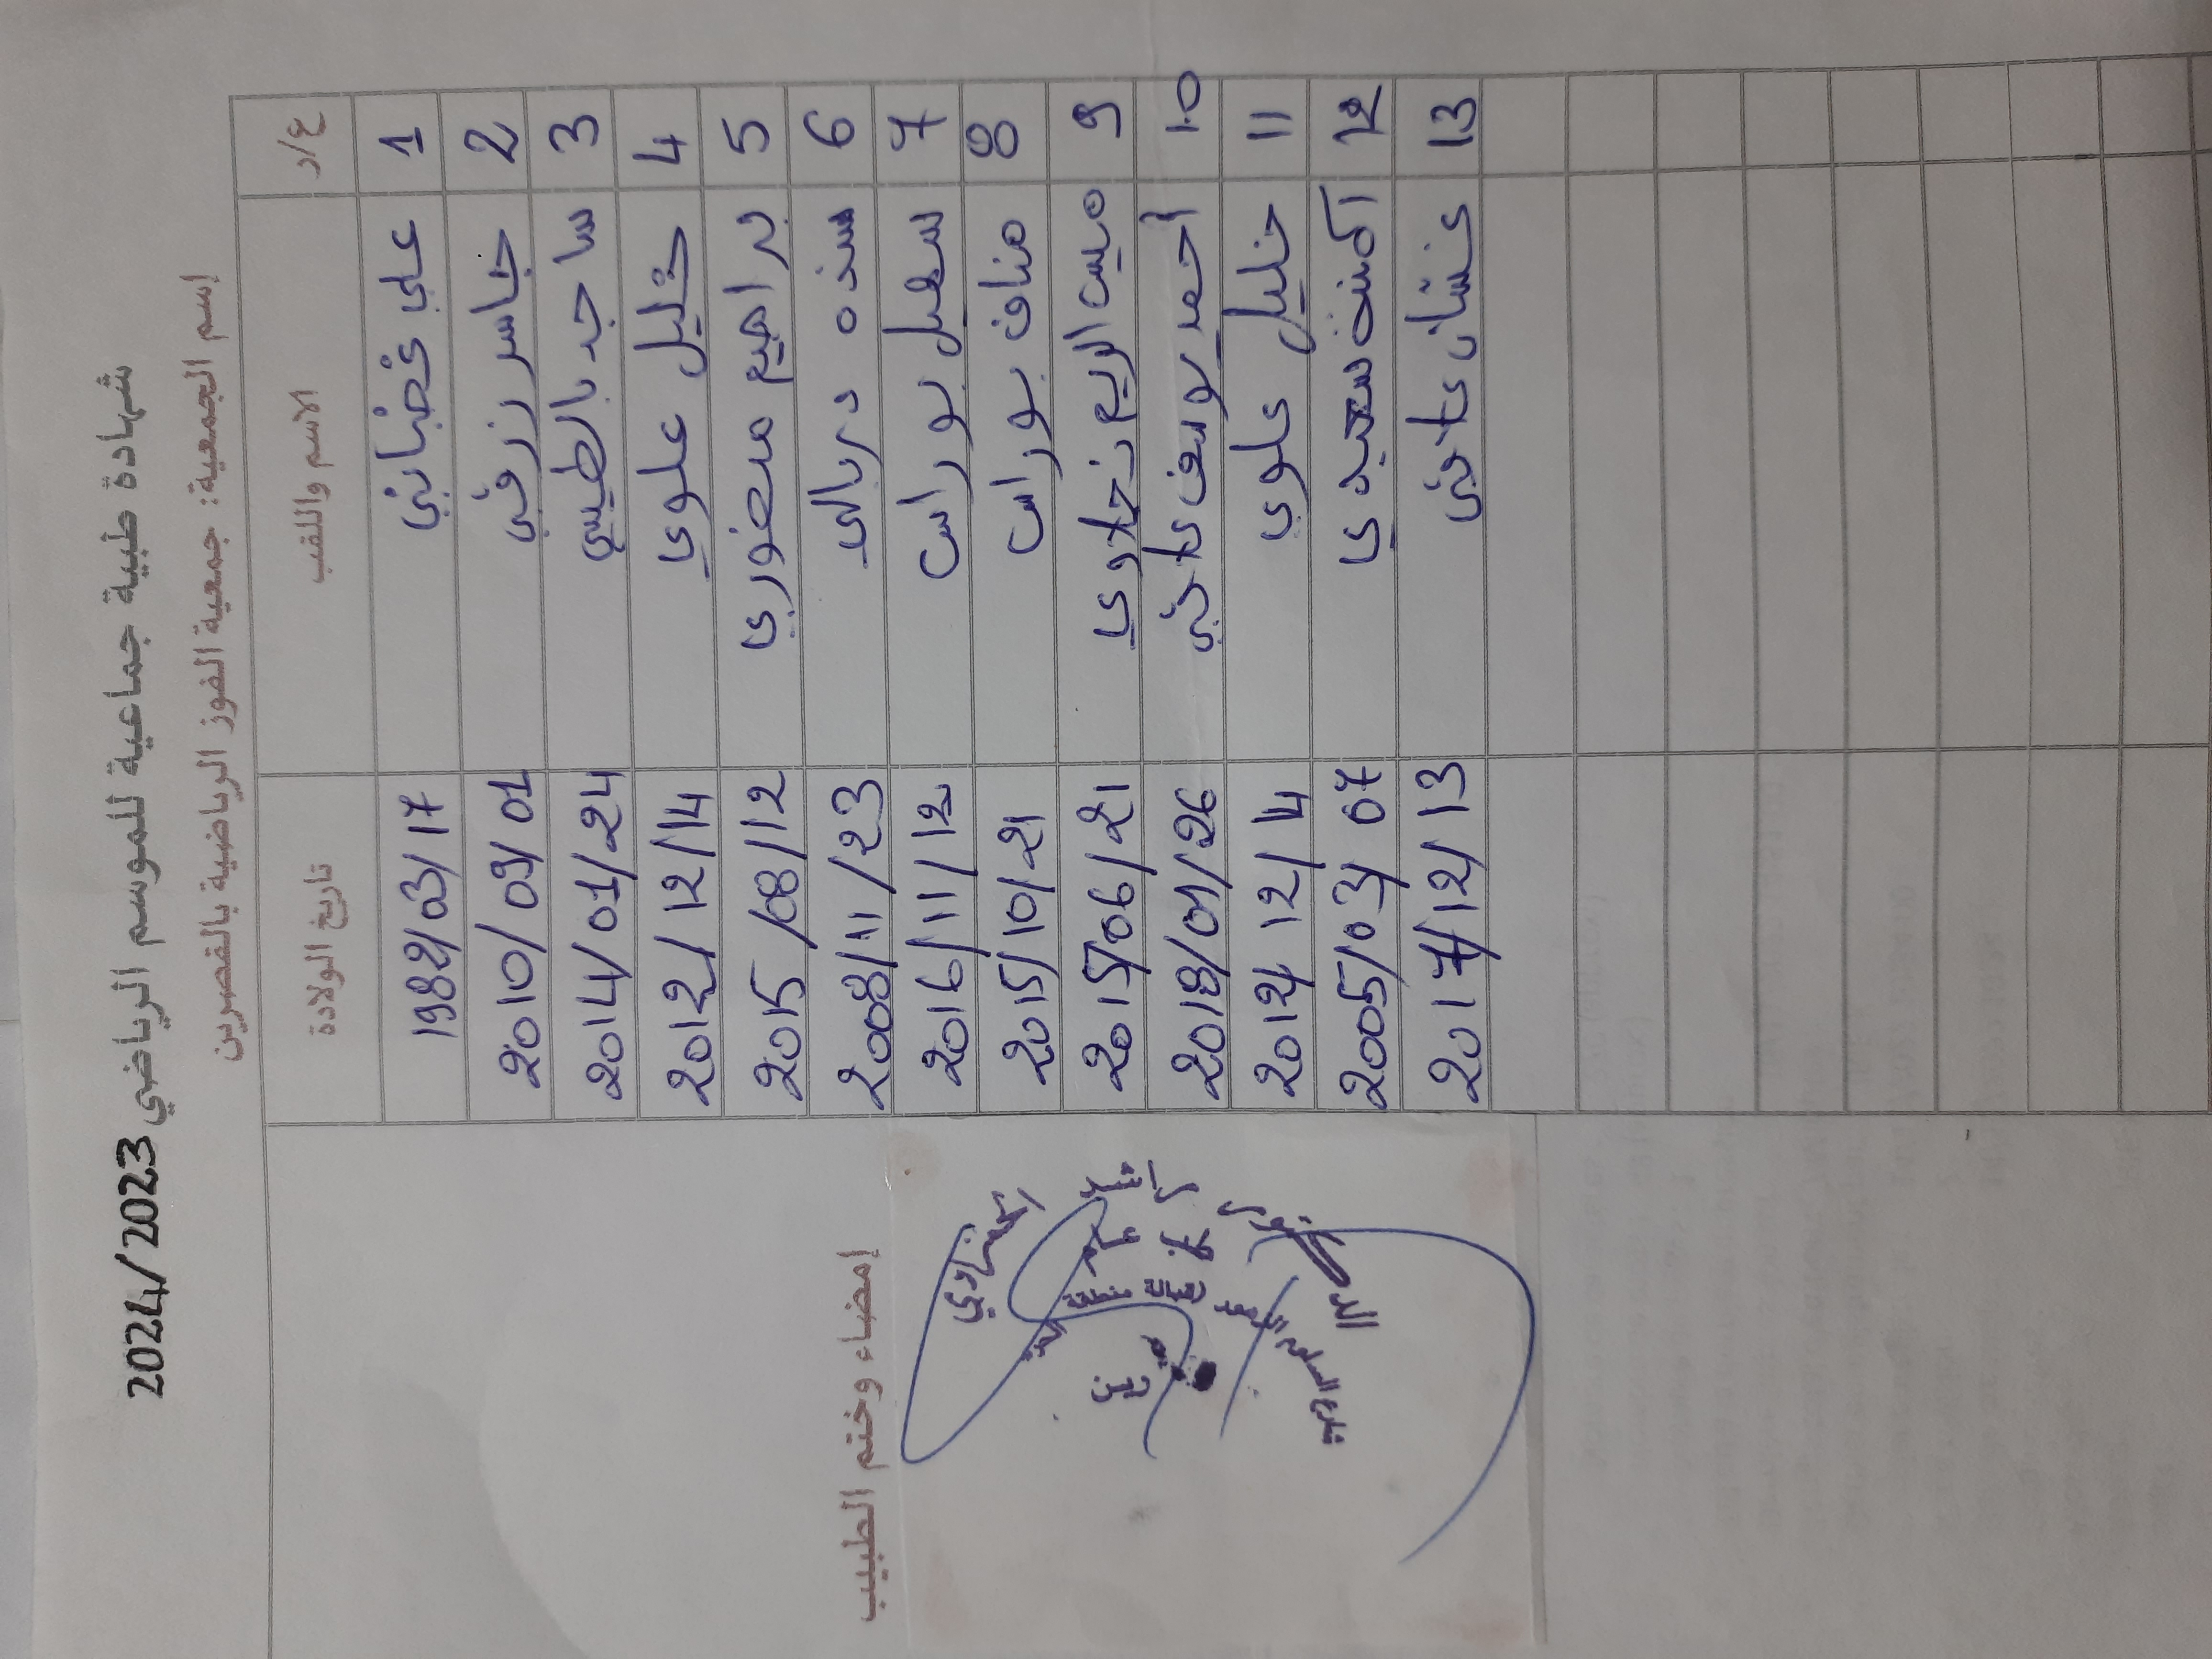 شهادة طبية جماعية للموسم الرياضي 2024/2023
إسم الجمعية: جمعية الفوز الرياضية بالقصرين
ع/د الاسم واللقب تاريخ الولادة
1 علي غضباني 1982/03/17
2 جاسر رزقي 2010/09/01
3 ساجد بالطيبي 2014/01/24
4 خليل علوي 2012/12/14
5 براهيم منصوري 2015/08/12
6 سنده دربالي 2008/11/23
7 سهيل بوراس 2016/11/12
8 مناف بوراس 2015/10/21
9 ميس الريم 2015/06/21
10 أحمد يوسف 2018/01/26
11 خليل علوي 2012/12/14
12 سعيدي 2005/03/07
13 غسان 2017/12/13
إمضاء وختم الطبيب